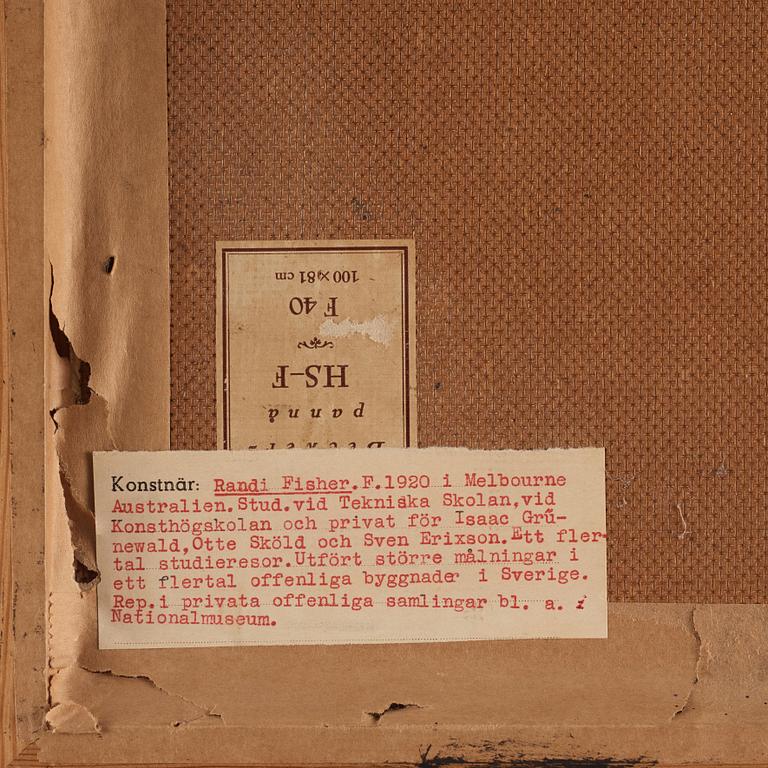 100 × 81 cm
F 40
HS-F
pannå
Beckers
Konstnär: Randi Fisher.F.1920 i Melbourne
Australien.Stud.vid Tekniska Skolan,vid
Konsthögskolan och privat för Isaac Grü-
newald,Otte Sköld och Sven Erixson.Ett fler-
tal studieresor.Utfört större målningar i
ett flertal offenliga byggnader i Sverige.
Rep.i privata offenliga samlingar bl. a. i
Nationalmuseum.